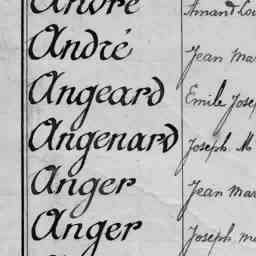 André Amand
André Jean
Angeard Emile
Angenard Joseph. M
Anger Jean
Anger Joseph,